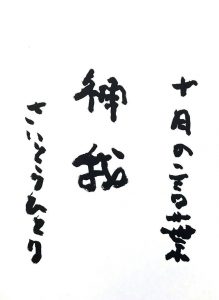 十月の言葉
神我
さいとうひとり